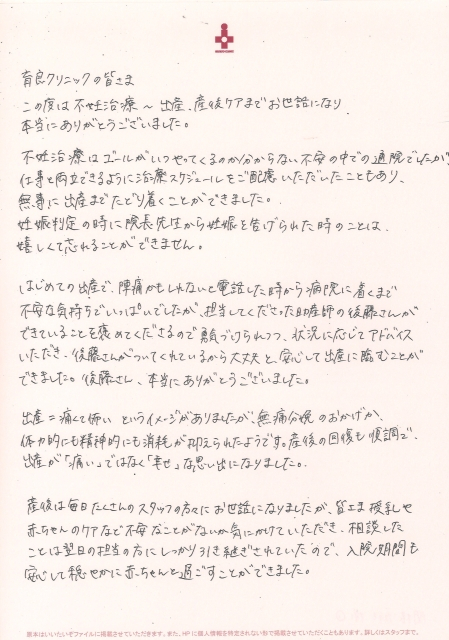 育良クリニックの皆さま
この度は不妊治療〜出産、産後ケアまでお世話になり
本当にありがとうございました。
不妊治療はゴールがいつやってくるのか分からない不安の中での通院でしたが
仕事と両立できるように治療スケジュールをご配慮いただいたこともあり、
無事に出産までたどり着くことができました。
妊娠判定の時に院長先生から妊娠を告げられた時のことは、
嬉しくて忘れることができません。
はじめての出産で、陣痛かもしれないと電話した時から病院に着くまで
不安な気持ちでいっぱいでしたが、担当してくださった助産師の後藤さんが
できていることを褒めてくださるので勇気づけられつつ、状況に応じてアドバイス
いただき、後藤さんがついてくれているから大丈夫と、安心して出産に臨むことが
できました。後藤さん、本当にありがとうございました。
出産=痛くて怖い というイメージがありましたが、無痛分娩のおかげか、
体力的にも精神的にも消耗が抑えられたようです。産後の回復も順調で、
出産が「痛い」ではなく「幸せ」な思い出になりました。
産後は毎日たくさんのスタッフの方々にお世話になりましたが、皆さま授乳や
赤ちゃんのケアなど不安なことがないか気にかけていただき、相談した
ことは翌日の担当の方にしっかり引き継ぎされていたので、入院期間も
安心して穏やかに赤ちゃんと過ごすことができました。
原本はいいたいぞファイルに掲載させていただきます。また、HPに個人情報を特定されない形で掲載させていただくこともあります。詳しくはスタッフまで。